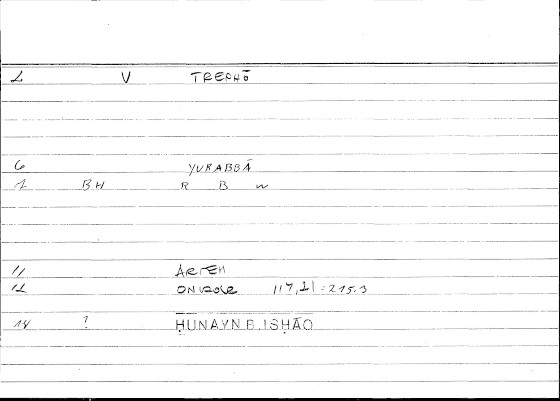 1 V TREPHŌ
6 YURABBĀ
7 BH R B w
11 ARTEM
12 117,21 = 215.3
14 ? ḤUNAYN B. ISḤĀQ